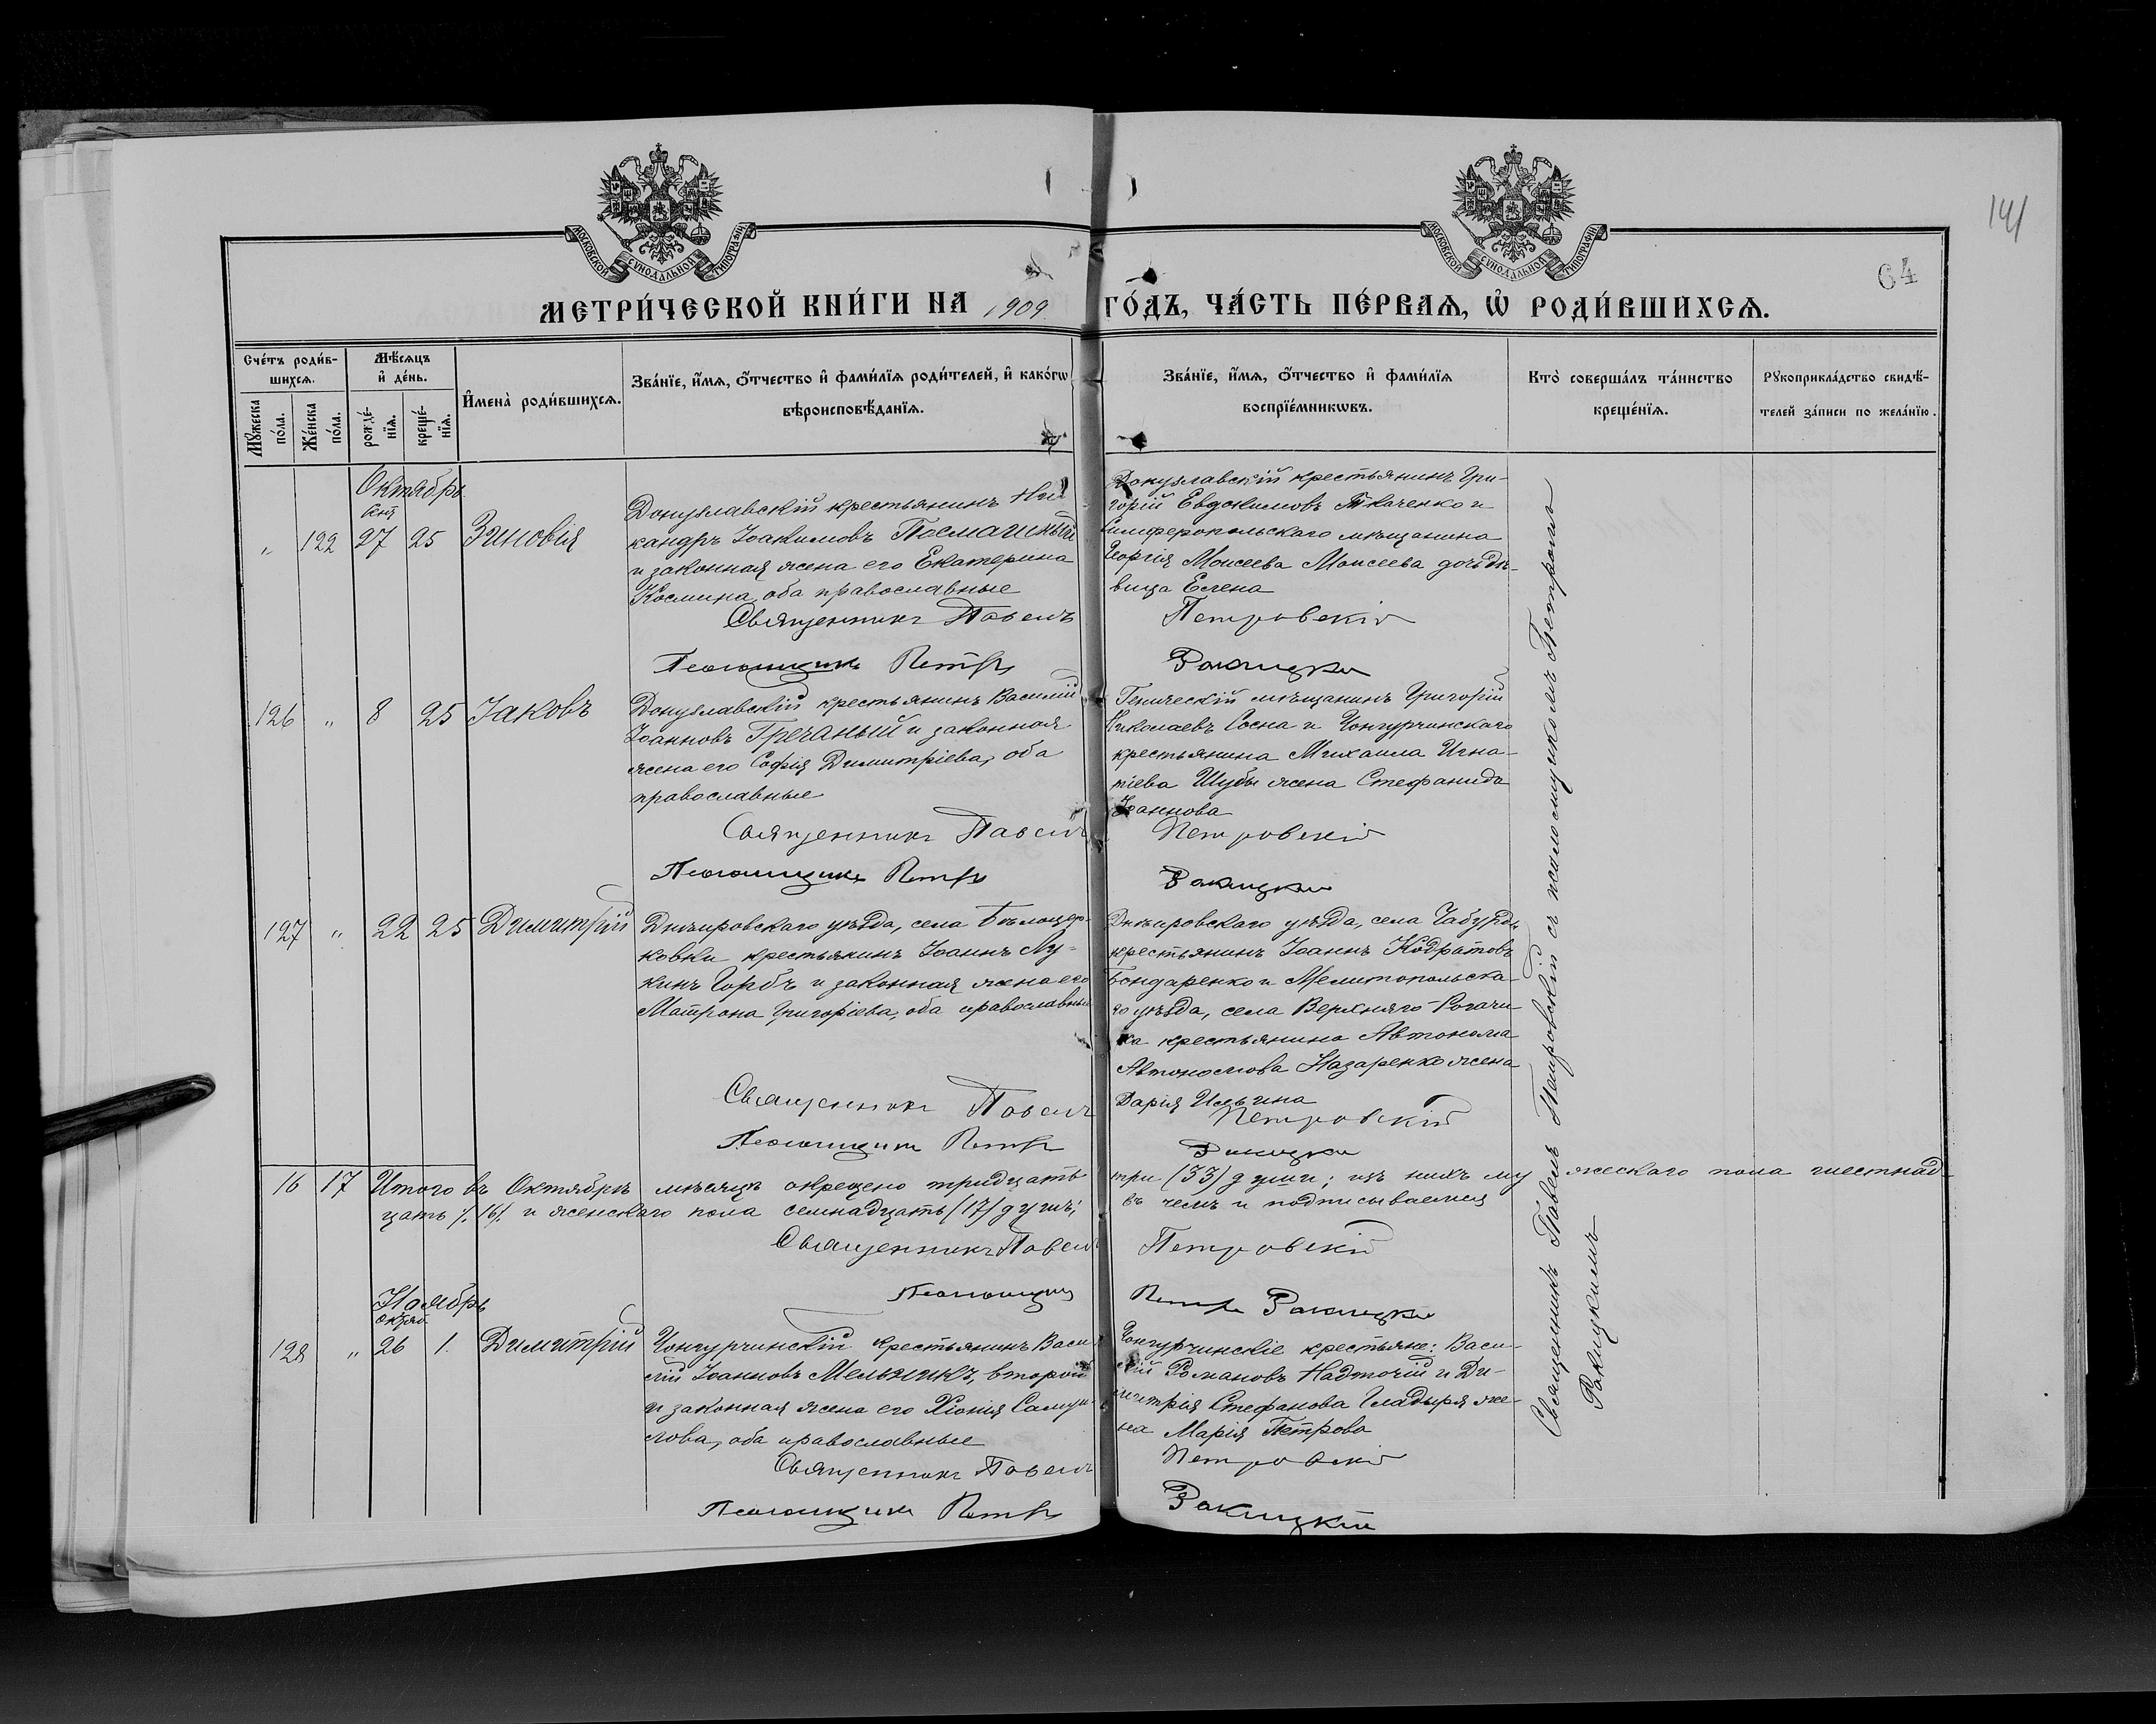 141
64
МОСКОВСКОЙ СѴНОДАЛЬНОЙ ТИПОГРАФІИ
МОСКОВСКОЙ СѴНОДАЛЬНОЙ ТИПОГРАФІИ
МЕТРИ́ЧЕСКОЙ КНИ́ГИ НА 1909 ГО́ДЪ, ЧА́СТЬ ПЕ́РВАѦ, Ѡ҆ РОДИ́ВШИХСѦ.
Сче́тъ роди́в-
шихсѧ.
Мꙋ́жеска по́ла.
Же́нска по́ла.
Мѣ́сѧцъ
и҆ де́нь.
рожде́-
нїѧ.
креще́-
нїѧ.
И҆мена̀ роди́вшихсѧ.
Зва́нїе, и҆́мѧ, ѻ҆́тчество и҆ фами́лїѧ роди́телей, и҆ како́гѡ
вѣроисповѣ́данїѧ.
Зва́нїе, и҆́мѧ, ѻ҆́тчество и҆ фами́лїѧ
воспрїе́мникѡвъ.
Кто̀ соверша́лъ та́инство
креще́нїѧ.
Рꙋкоприкла́дство свидѣ́-
телей за́писи по жела́нїю.
Октябрь
Сент
„ 122 27 25 Зиновія
Донузлавскій крестьянинъ Ни-
кандръ Іоакимовъ Посмашный
и законная жена его Екатерина
Космина, оба православные
Священникъ Павелъ Петровскій
Псаломщикъ Петръ Ракицкій
Донузлавскій крестьянинъ Гри-
горій Евдокимовъ Ткаченко и
Симферопольскаго мѣщанина
Георгія Моисеева Моисеева дочь дѣ-
вица Елена
126 „ 8 25 Іаковъ
Донузлавскій крестьянинъ Василій
Іоанновъ Гречаный и законная
жена его Софія Димитріева, оба
православные
Священникъ Павелъ Петровскій
Псаломщикъ Петръ Ракицкій
Геническій мѣщанинъ Григорій
Николаевъ Сосна и Чонгурчинскаго
крестьянина Михаила Игна-
тіева Шубы жена Стефанида
Іоаннова
127 „ 22 25 Димитрій
Днѣпровскаго уѣзда, села Бѣлоцер-
ковки крестьянинъ Іоаннъ Лу-
кинъ Горбъ и законная жена его
Матрона Григоріева, оба православные
Священникъ Павелъ Петровскій
Псаломщикъ Петръ Ракицкій
Днѣпровскаго уѣзда, села
крестьянинъ Іоаннъ Кодратовъ
Бондаренко и Мелитопольска-
го уѣзда, села Верхняго-Рогачи-
ка крестьянина Автонома
Автономова Назаренко жена
Дарія Ильина
16 17 Итого въ Октябрѣ мѣсяцѣ окрещено тридцать три (33) души; изъ нихъ мужескаго пола шестнад-
цать /16/. и женскаго пола семнадцать (17) душъ; въ чемъ и подписываемся
Священникъ Павелъ Петровскій
Псаломщикъ Петръ Ракицкій
Ноябрь
Октяб.
128 „ 26 1. Димитрій
Чонгурчинскій крестьянинъ Васи-
лій Іоанновъ Мельникъ, второй
и законная жена его Хіонія Самуи-
лова, оба православные
Священникъ Павелъ Петровскій
Псаломщикъ Петръ Ракицкій
Чонгурчинскіе крестьяне: Васи-
лій Романовъ Надточій и Ди-
митрія Стефанова Гладыря же-
на Марія Петрова
Священникъ Павелъ Петровскій съ псаломщикомъ Петромъ
Ракицкимъ